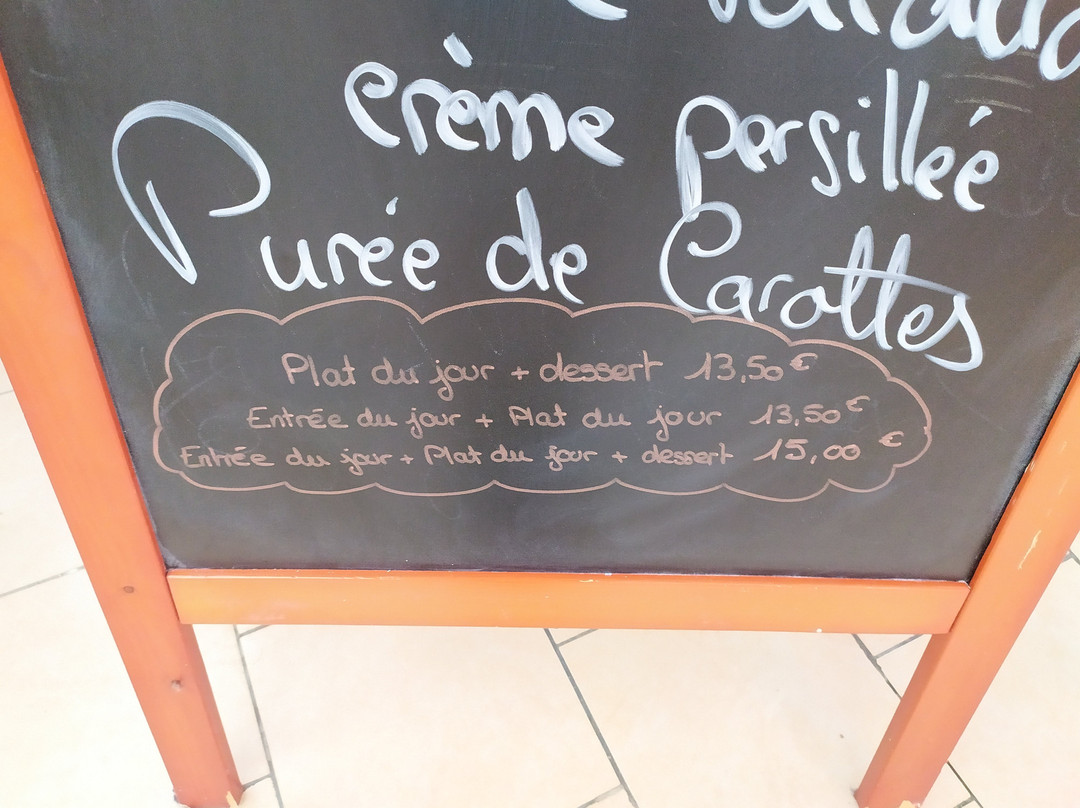 crème persillée
Purée de Carottes
Plat du jour + dessert 13,50€
Entrée du jour + Plat du jour 13,50€
Entrée du jour + Plat du jour + dessert 15,00 €